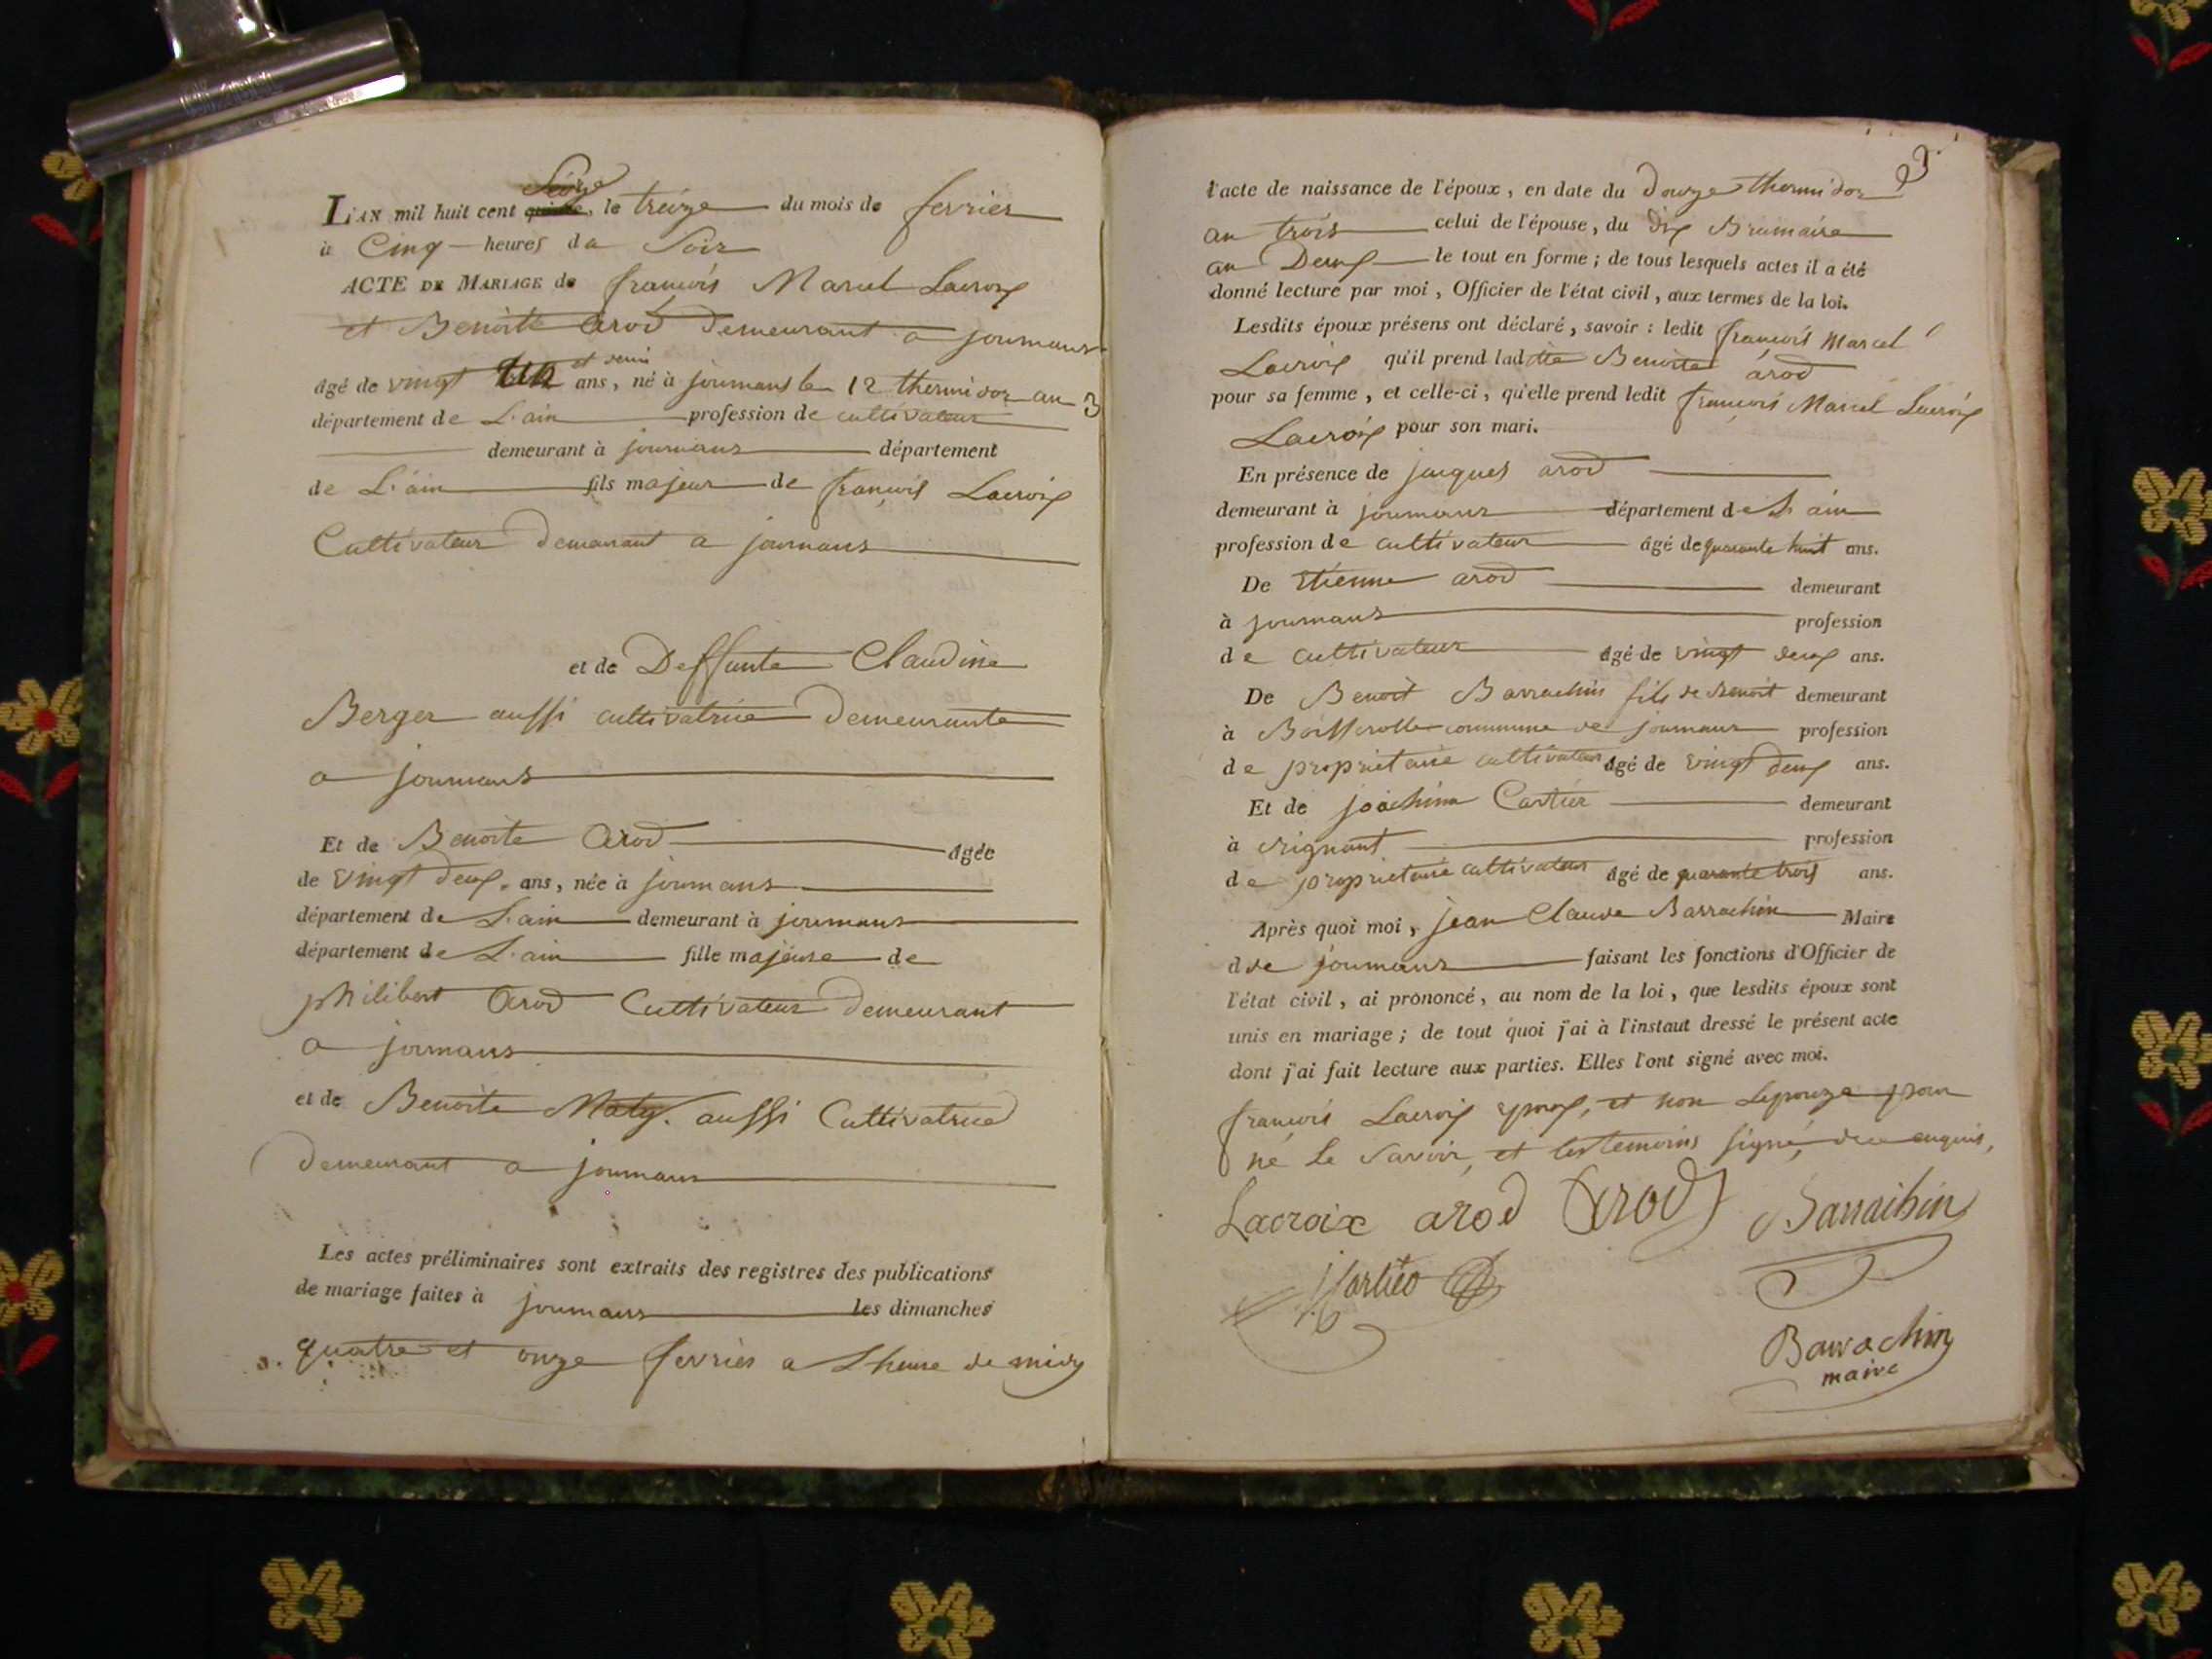 L'AN mil huit cent Seize, le treize du mois de fevrier
à Cinq heures da Soir
ACTE DE MARIAGE de françois Marcel Lacroix
et Benoite arod demeurant a joumans
âgé de vingt un et demi ans, né à joumans le 12 thermidor an 3
département de L'ain profession de cultivateur
demeurant à joumans département
de L'ain fils majeur de françois Lacroix
Cultivateur demeurant a joumans
et de Deffunte Claudine
Berger aussi cultivatrice demeurante
a joumans
Et de Benoite Arod âgée
de vingt deux ans, née à joumans
département de L'ain demeurant à joumans
département de L'ain fille majeure de
philibert Arod Cultivateur demeurant
a joumans
et de Benoite Maty aussi Cultivatrice
demeurant a joumans
Les actes préliminaires sont extraits des registres des publications
de mariage faites à joumans les dimanches
quatre et onze fevrier a L'heure de midy
l'acte de naissance de l'époux, en date du douze thermidor
an trois celui de l'épouse, du dix Brumaire
an Deux le tout en forme ; de tous lesquels actes il a été
donné lecture par moi, Officier de l'état civil, aux termes de la loi.
Lesdits époux présens ont déclaré, savoir : ledit françois Marcel
Lacroix qu'il prend ladite Benoite arod
pour sa femme, et celle-ci, qu'elle prend ledit françois Marcel Lacroix
Lacroix pour son mari.
En présence de jacques arod
demeurant à joumans département de L'ain
profession de cultivateur âgé de quarante huit ans.
De Etienne arod demeurant
à joumans profession
de cultivateur âgé de vingt deux ans.
De Benoit Barrachin fils de Benoit demeurant
à Boisserolle commune de joumans profession
de proprietaire cultivateur âgé de vingt deux ans.
Et de joachim Cartier demeurant
à profession
de proprietaire cultivateur âgé de quarante trois ans.
Après quoi moi, jean Claude Barrachin Maire
de joumans faisant les fonctions d'Officier de
l'état civil, ai prononcé, au nom de la loi, que lesdits époux sont
unis en mariage ; de tout quoi j'ai à l'instaut dressé le présent acte
dont j'ai fait lecture aux parties. Elles l'ont signé avec moi.
françois Lacroix epoux, et non Lepouze pour
ne le savoir, et les temoins signé, de ce enquis,
Lacroix arod Arod Barrachin
Barrachin
maire